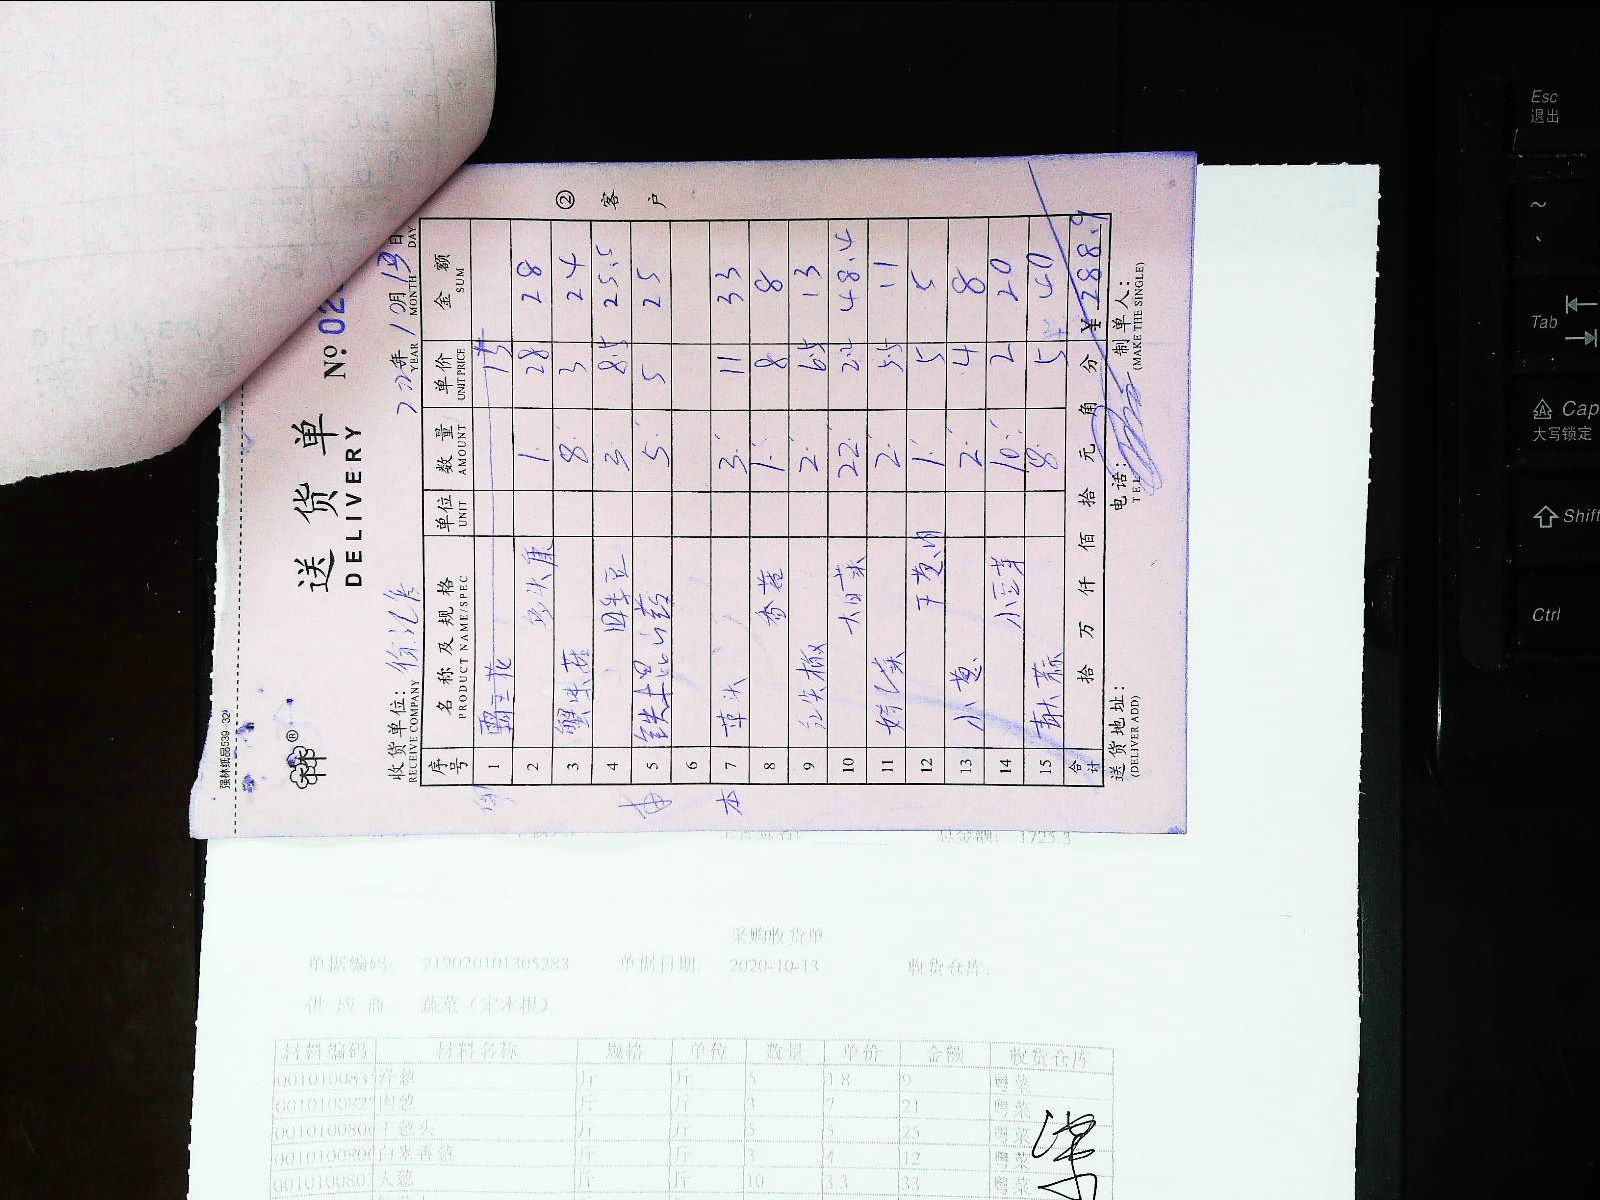 强林纸品539-32
②客户
送货单
DELIVERY
№. 02
收货单位:
RECEIVE COMPANY
年 10月 13日
YEAR MONTH DAY
序号 名称及规格 单位 数量 单价 金额
PRODUCT NAME/SPEC UNIT AMOUNT UNIT PRICE SUM
1 15
2 1. 28 28
3 8. 3 24
4 3. 8.5 25.5
5 5. 5 25
6
7 草头 3. 11 33
8 香菇 1. 8 8
9 红尖椒 2. 6.5 13
10 大白菜 22. 2.2 48.4
11 2. 5.5 11
12 1. 5 5
13 小葱 2. 4 8
14 小豆芽 10. 2 20
15 8. 5 40
合计 拾 万 仟 佰 拾 元 角 分 ¥288.9
送货地址: 电话: 制单人:
(DELIVER ADD) TEL (MAKE THE SINGLE)
总金额: 1725.3
采购收货单
单据编码: 212020101305283 单据日期: 2020-10-13 收货仓库:
供应商 蔬菜(宋木根)
材料编码 材料名称 规格 单位 数量 单价 金额 收货仓库
洋葱 斤 斤 5 1.8 9 粤菜
肉葱 斤 斤 3 7 21 粤菜
干葱头 斤 斤 5 5 25 粤菜
斤 斤 3 4 12 粤菜
大葱 斤 斤 10 3.3 33 粤菜
Esc
退出
~
Tab
Cap
大写锁定
Shift
Ctrl